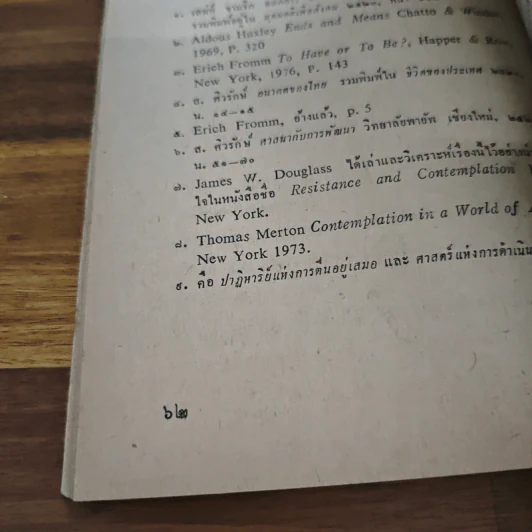 ๒. Aldous Huxley Ends and Means Chatto & Windus,
1969, P. 320
๓. Erich Fromm To Have or To Be?, Happer & Row,
New York, 1976, P. 143
๔. ส. ศิวรักษ์ อนาคตของไทย รวมพิมพ์ใน ชีวิตของประเทศ
น. ๑๔—๑๕
๕. Erich Fromm, อ้างแล้ว, p. 5
๖. ส. ศิวรักษ์ ศาสนากับการพัฒนา วิทยาลัยพายัพ เชียงใหม่,
น. ๕๑—๗๐
๗. James W. Douglass ได้เล่าและวิเคราะห์เรื่องนี้ไว้อย่าง
ใจในหนังสือชื่อ Resistance and Contemplation
New York.
๘. Thomas Merton Contemplation in a World of
New York 1973.
๙. คือ ปาฏิหาริย์แห่งการตื่นอยู่เสมอ และ ศาสตร์แห่งการดำเนิน
๖๒